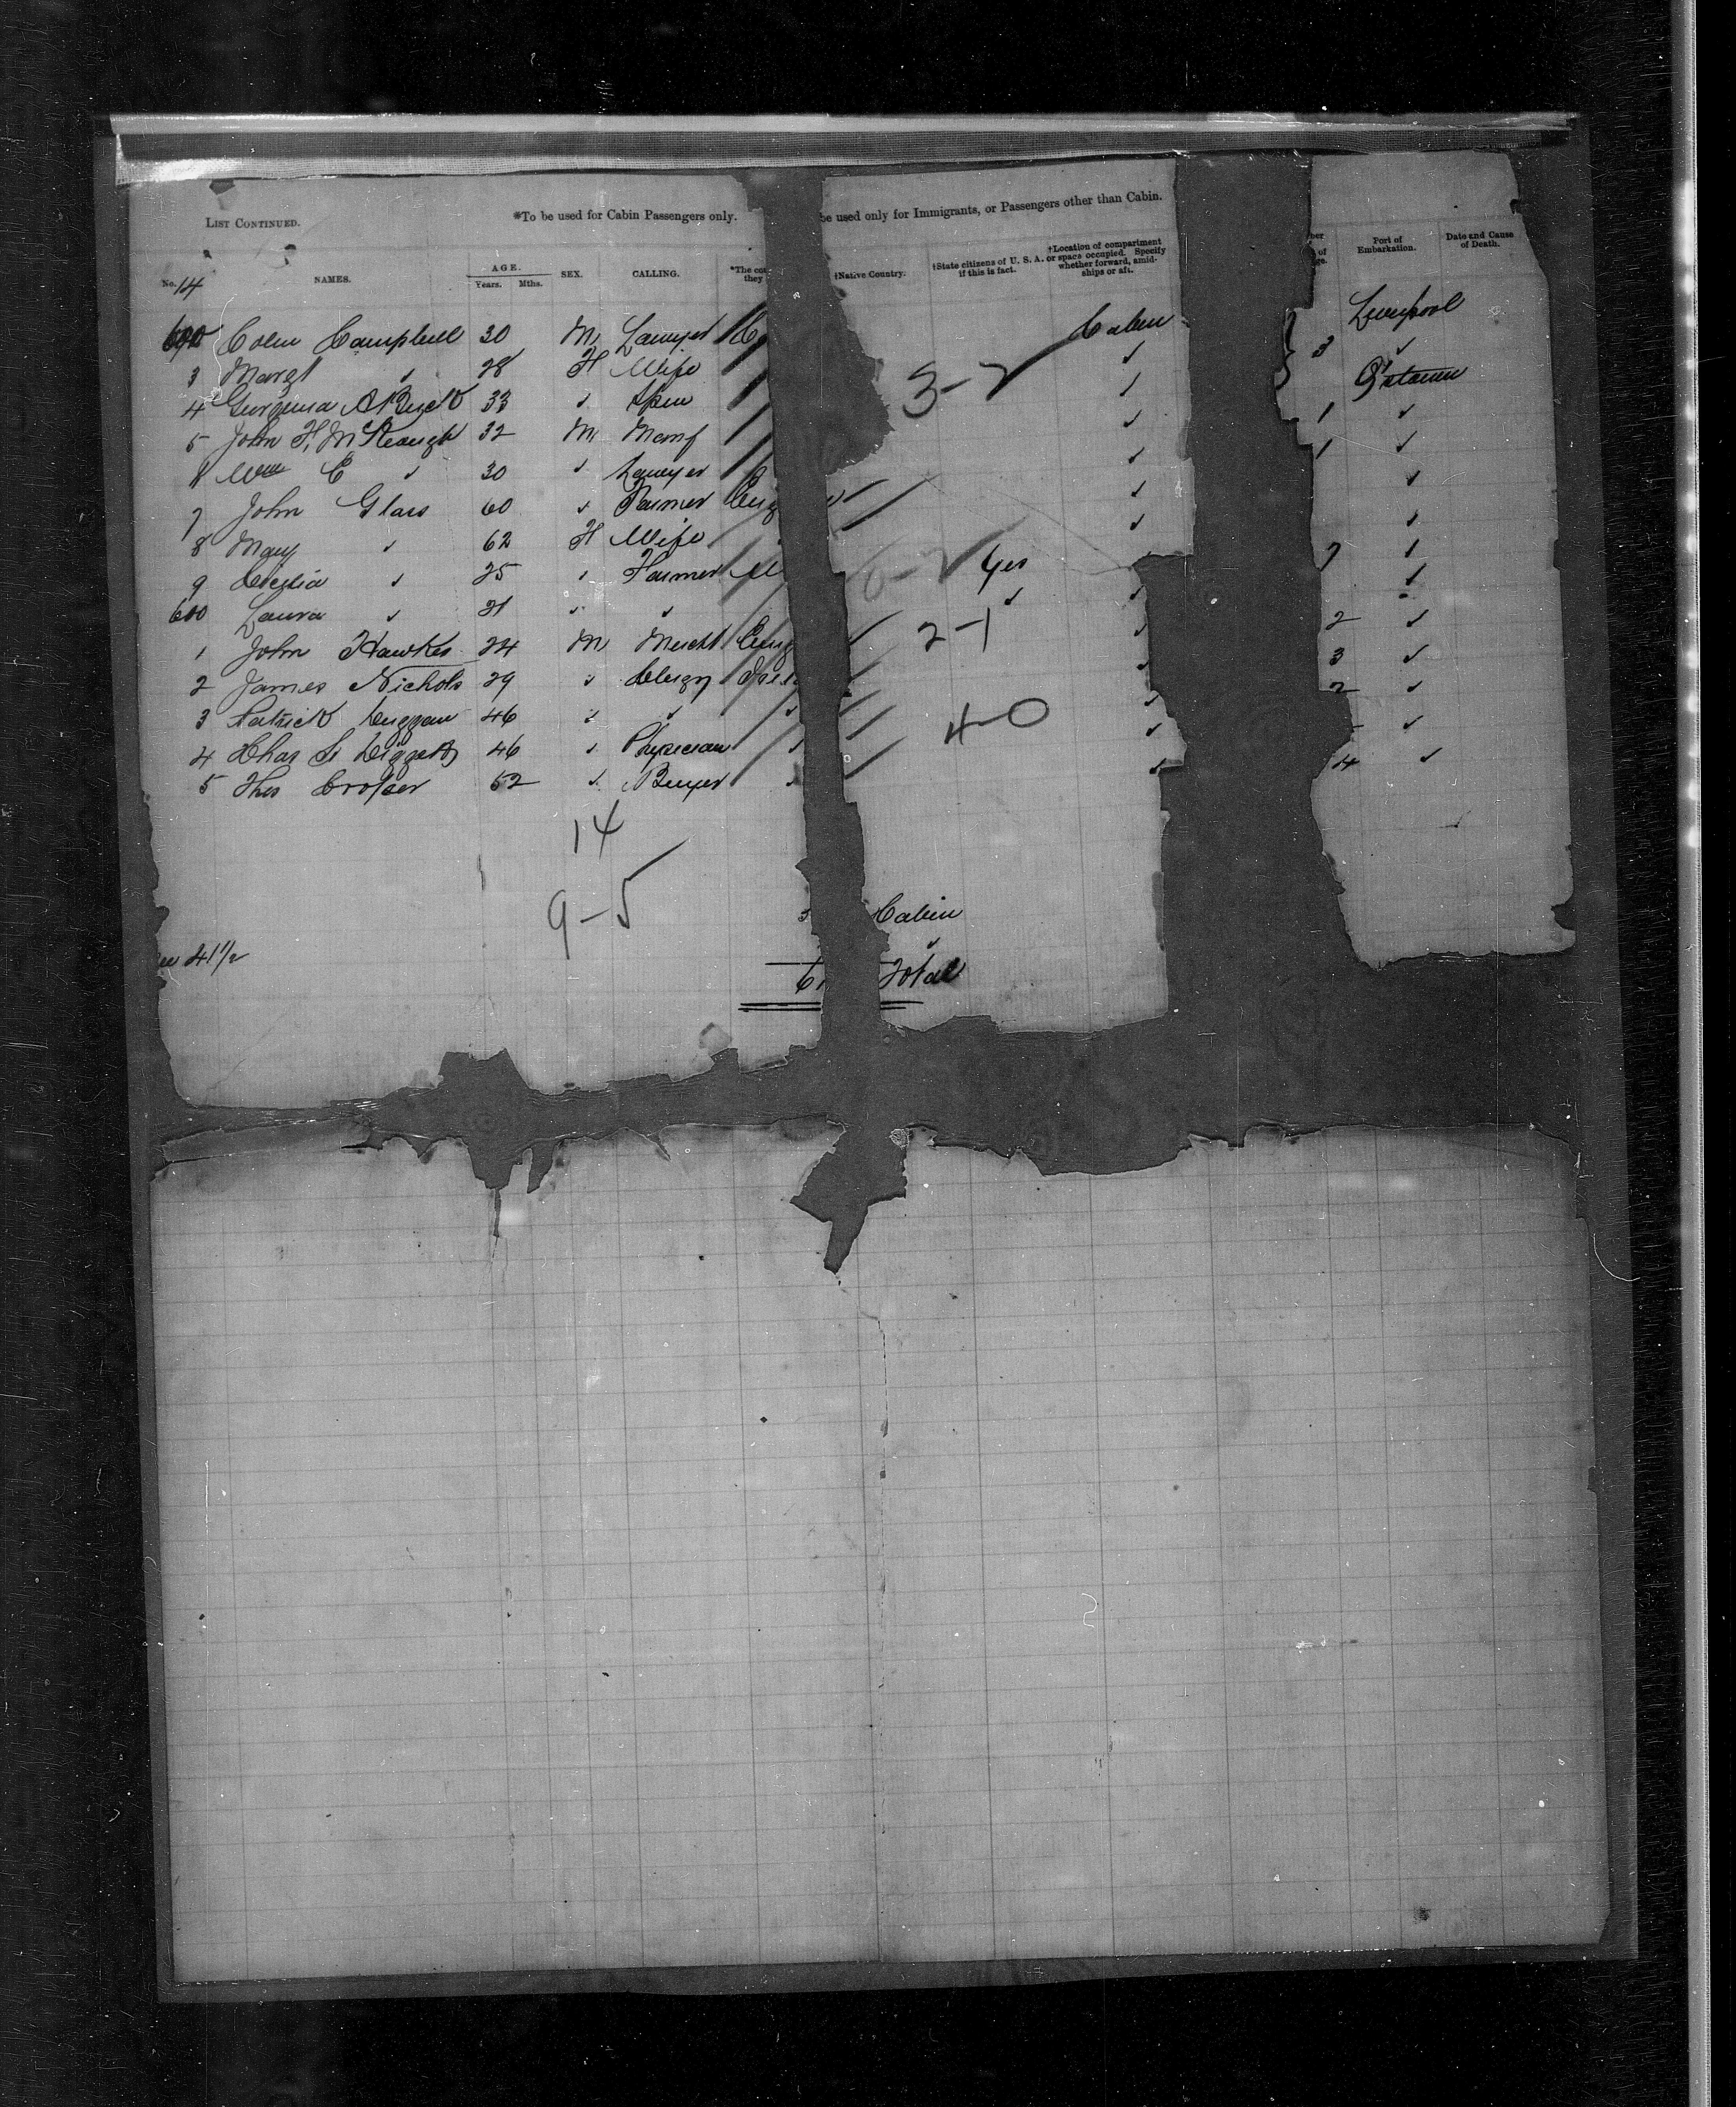 LIST CONTINUED. *To be used for Cabin Passengers only. be used only for Immigrants, or Passengers other than Cabin.
No. 14 NAMES. AGE. Years. Mths. SEX. CALLING. *The cou they †Native Country. †State citizens of U. S. A. if this is fact. †Location of compartment or space occupied. Specify whether forward, amid-ships or aft. ber of ge. Port of Embarkation. Date and Cause of Death.
Colin Campbell 30 M Lawyer Cabin Liverpool
3 Margt ✓ 28 F Wife ✓ 3 ✓
4 Georgina A 33 ✓ ✓
5 John H. 32 M Manf ✓ 1 ✓
Wm C ✓ 30 ✓ Lawyer ✓ 1 ✓
7 John Glass 60 ✓ Farmer Eng ✓ ✓
8 Mary ✓ 62 F Wife ✓ ✓
9 Cecilia ✓ 25 ✓ Farmer Yes 7 ✓
600 Laura ✓ 21 ✓ ✓ ✓ ✓ ✓
1 John Hawkes 24 M Mercht Eng ✓ 2 ✓
2 James Nichols 29 ✓ Clergy ✓ 3 ✓
3 Patrick Duggan 46 ✓ ✓ ✓ ✓ 2 ✓
4 Chas 46 ✓ Physician ✓ ✓ ✓
5 Thos 52 ✓ Buyer ✓ ✓ 4 ✓
3-2
6-2
2-1
4-0
14
9-5
Cabin
41½ ✓
6 Total